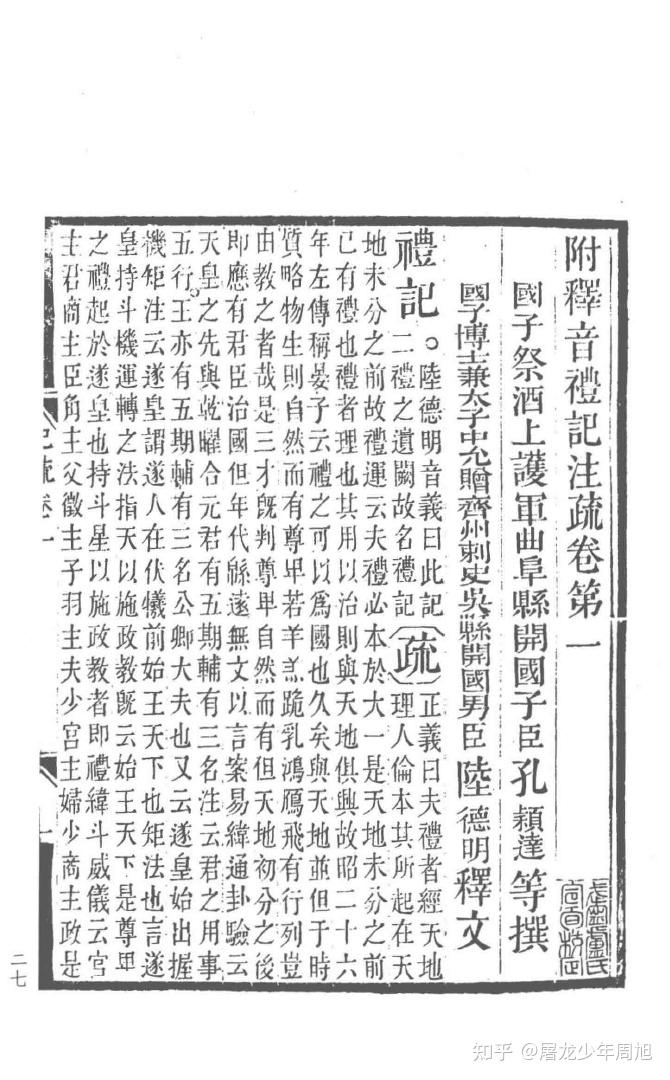 附釋音禮記注疏卷第一
國子祭酒上護軍曲阜縣開國子臣孔穎達等撰
國子博士兼太子中允贈齊州刺史吳縣開國男臣陸德明釋文
禮記○陸德明音義曰此記二禮之遺闕故名禮記疏正義曰夫禮者經天地理人倫本其所起在天
地未分之前故禮運云夫禮必本於大一是天地未分之前
已有禮也禮者理也其用以治則與天地俱興故昭二十六
年左傳稱晏子云禮之可以爲國也久矣與天地並但于時
質略物生則自然而有尊卑若羊羔跪乳鴻鴈飛有行列豈
由教之者哉是三才旣判尊卑自然而有但天地初分之後
即應有君臣治國但年代緜遠無文以言案易緯通卦驗云
天皇之先與乾曜合元君有五期輔有三名注云君之用事
五行王亦有五期輔有三名公卿大夫也又云遂皇始出握
機矩注云遂皇謂遂人在伏犧前始王天下也矩法也言遂
皇持斗機運轉之法指天以施政教旣云始王天下是尊卑
之禮起於遂皇也持斗星以施政教者即禮緯斗威儀云宮
主君商主臣角主父徵主子羽主夫少宮主婦少商主政是
記疏卷一
二七
知乎 @屠龙少年周旭